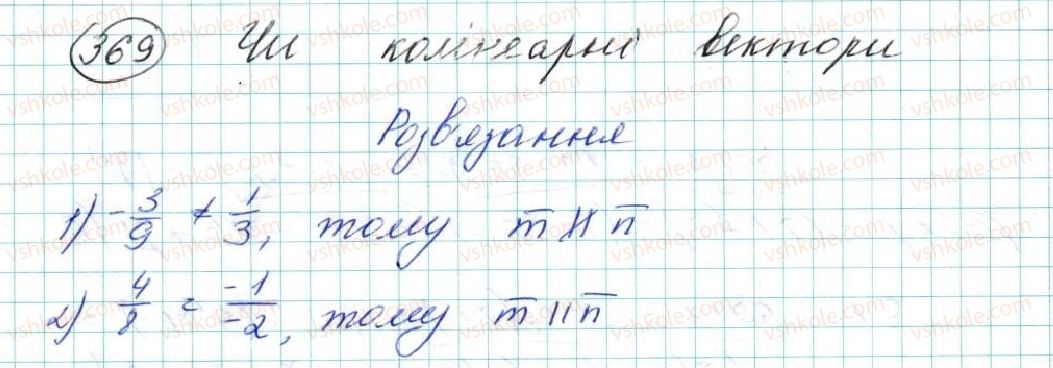 369 Чи колінеарні вектори
Розв'язання
1) -3/9 ≠ 1/3, тому m̅ ∦ n̅
2) 4/8 = -1/-2, тому m̅ || n̅
vshkole.com